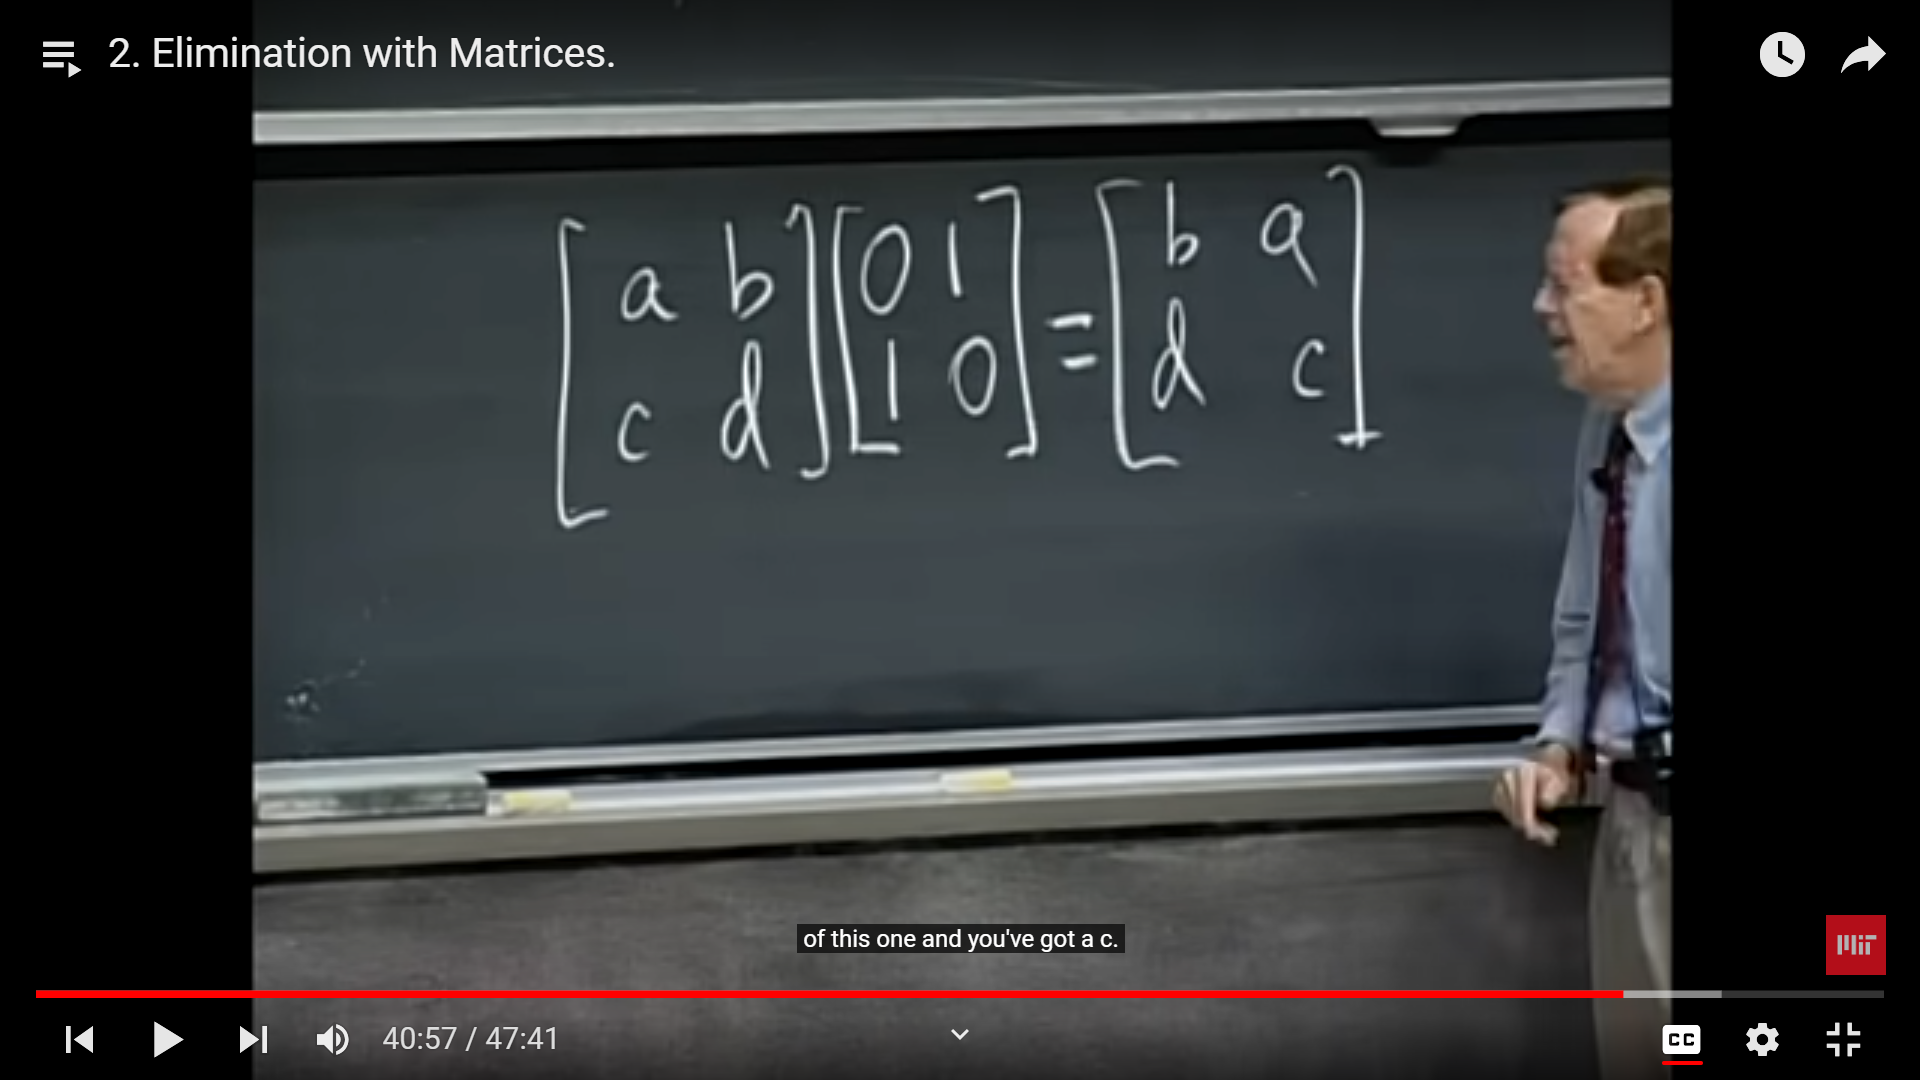 2. Elimination with Matrices.
[a b] [0 1] = [b a]
[c d] [1 0] [d c]
of this one and you've got a c.
MIT
40:57 / 47:41
CC